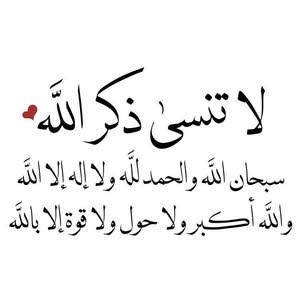 لا تنسىٰ ذكر اللَّه
سبحان اللَّه والحمد للَّه ولا إله إلا اللَّه
واللَّه أكبر ولا حول ولا قوة إلا باللَّه